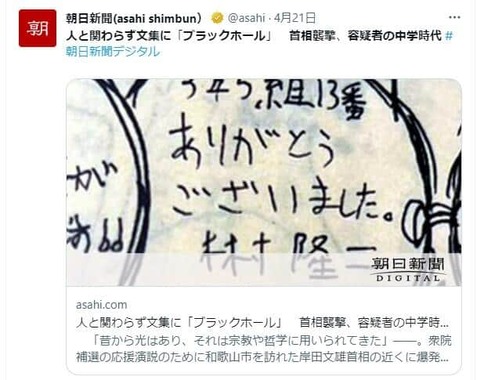 朝日新聞(asahi shimbun) @asahi · 4月21日
人と関わらず文集に「ブラックホール」 首相襲撃、容疑者の中学時代 #
朝日新聞デジタル
番
ありがとう
ございました。
隆
が
朝日新聞
DIGITAL
asahi.com
人と関わらず文集に「ブラックホール」 首相襲撃、容疑者の中学時…
「昔から光はあり、それは宗教や哲学に用いられてきた」――。衆院
補選の応援演説のために和歌山市を訪れた岸田文雄首相の近くに爆発…